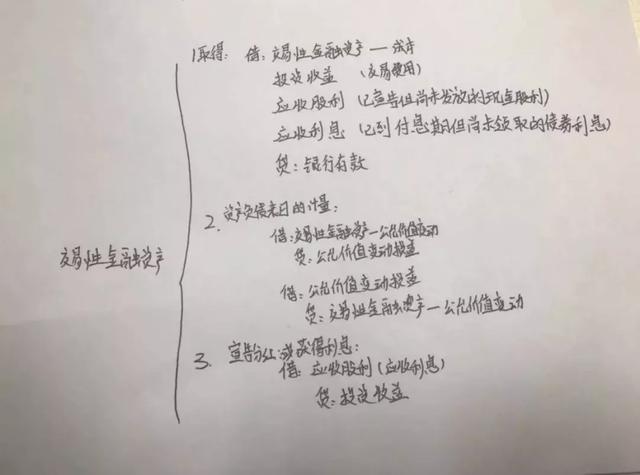 1取得: 借: 交易性金融资产—成本
投资收益 (交易费用)
应收股利 (已宣告但尚未发放的现金股利)
应收利息 (已到付息期但尚未领取的债券利息)
贷: 银行存款
2. 资产负债表日的计量:
借: 交易性金融资产—公允价值变动
贷: 公允价值变动损益
借: 公允价值变动损益
贷: 交易性金融资产—公允价值变动
交易性金融资产
3. 宣告分红或获得利息:
借: 应收股利 (应收利息)
贷: 投资收益